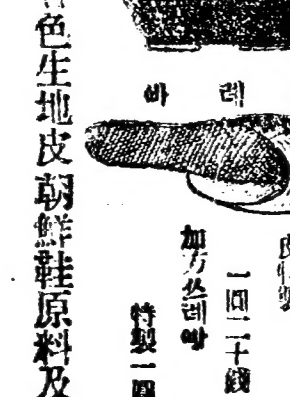 레 바
一圓二十錢
加方쓰레빠
特製一圓
色生地皮朝鮮鞋原料及